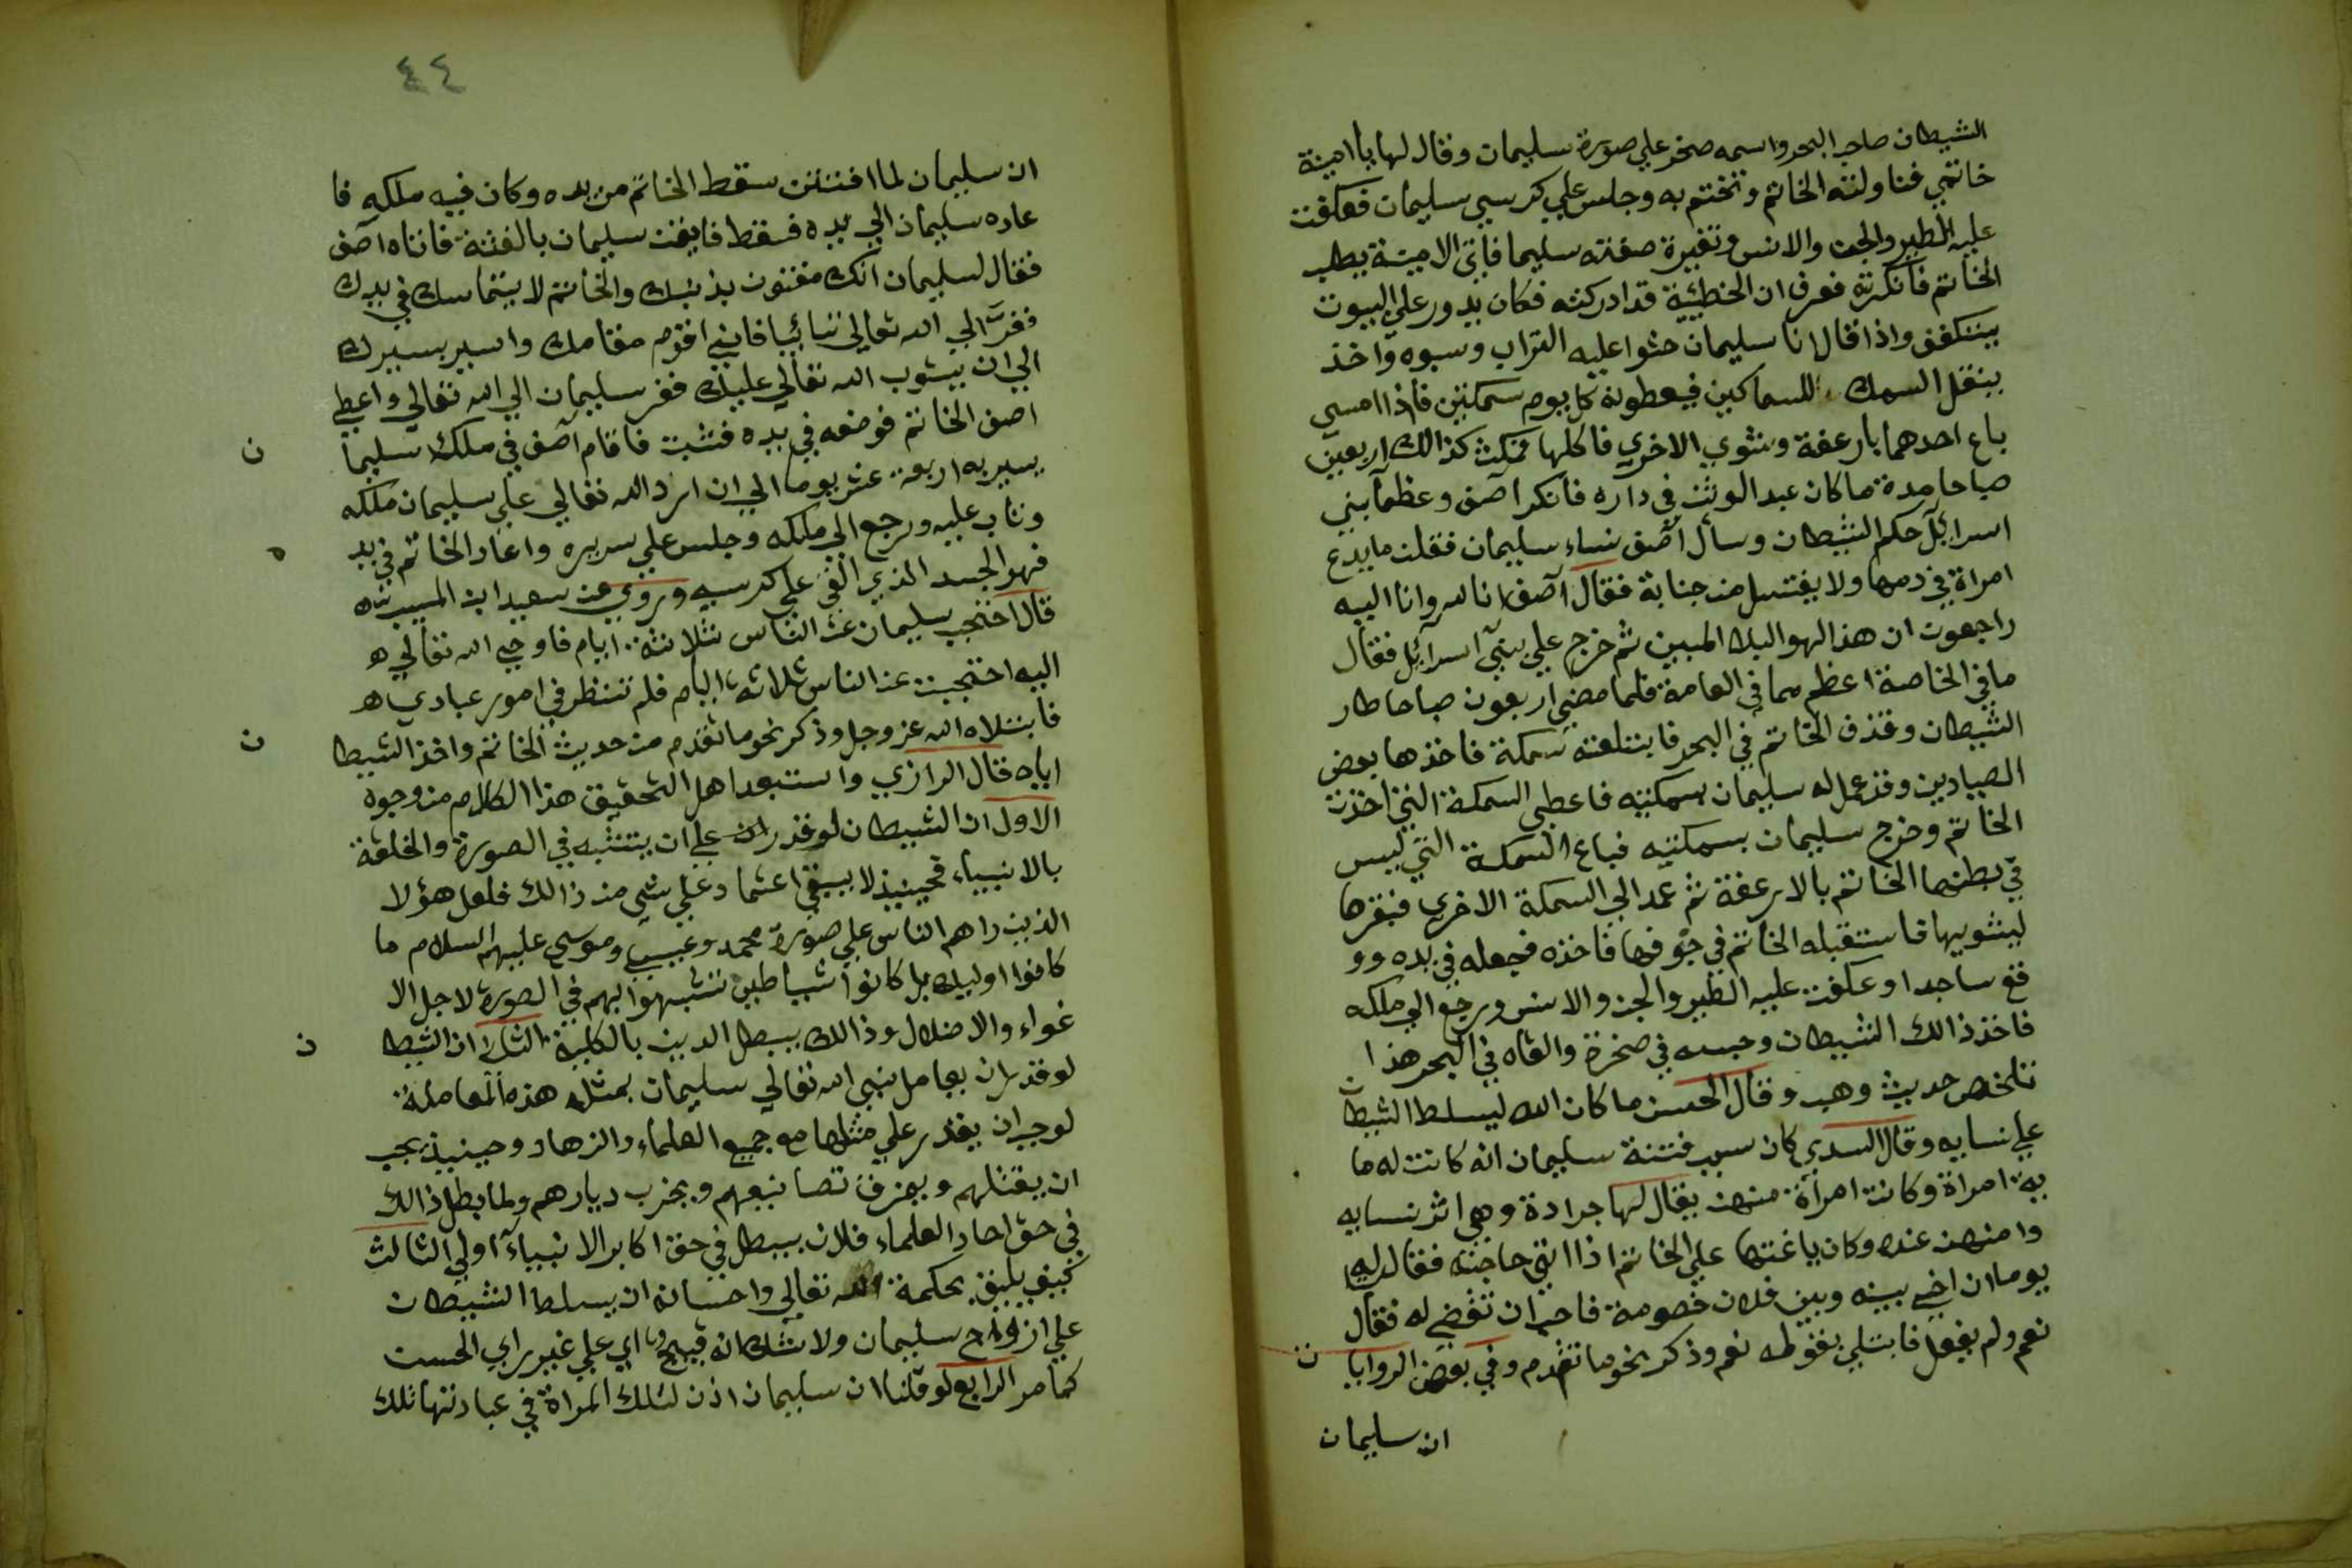 الشيطان صاحب البحر واسمه صخر علي صورة سليمان وقال لها يا امينة
خاتمي فناولته الخاتم وتختم به وجلس علي كرسي سليمان فعكفت
عليه الطير والجن والانس وتغيرة صفته سليما فاتى الامينة يطلب
الخاتم فانكرته فعرف ان الخطيئة قد ادركته فكان يدور علي البيوت
يتكفف واذا قال انا سليمان حثوا عليه التراب وسبوه واخذ
ينقل السمك للسماكين فيعطونه كل يوم سمكتين فاذا امسي
باع احدهما بارغفة وشوي الاخري فاكلها فمكث كذالك اربعين
صباحا مدة ما كان عبد الوثن في داره فانكر اصف وعظمآ بني
اسرائل حكم الشيطان وسأل آصف نساء سليمان فقلن ما يدع
امراة في دمها ولا يغتسل من جنابة فقال آصف انا لله وانا اليه
راجعون ان هذا لهو البلاء المبين ثم خرج علي بني اسرائل فقال
ما في الخاصة اعظم مما في العامة فلما مضي اربعون صباحا طار
الشيطان وقذف الخاتم في البحر فابتلعته سمكة فاخذها بعض
الصيادين وقد عمل له سليمان بسمكتيه فاعطي السمكة التي اخذت
الخاتم وخرج سليمان بسمكتيه فباع السمكة التي ليس
في بطنها الخاتم بالارغفة ثم عمد الي السمكة الاخري فبقرها
ليشويها فاستقبله الخاتم في جوفها فاخذه فجعله في يده وو
قع ساجدا وعكفت عليه الطير والجن والانس ورجع الي ملكه
فاخذ ذالك الشيطان وحبسه في صخرة والقاه في البحر هذا
تلخص حديث وهب وقال الحسن ما كان الله ليسلط الشيطان
علي نسايه وقال السدي كان سبب فتنة سليمان انه كانت له ما
ية امراة وكانت امرأة منهن يقال لها جرادة وهي اثر نسايه
وا منهن عنده وكان ياغتها علي الخاتم اذا اتي حاجته فقال له
يوما ان اخي بينه وبين فلان خصومة فاحب ان تقضي له فقال
نعم ولم يفعل فابتلي بقوله نعم وذكر نحو ما تقدم وفي بعض الروايا ت
ان سليمان
٤٤
ان سليمان لما افتتن سقط الخاتم من يده وكان فيه ملكه فا
عاده سليمان الي يده فسقط فايقن سليمان بالفتنة فاتاه آصف
فقال لسليمان انك مفتون بذنبك والخاتم لا يتماسك في يدك
ففرّ الي الله تعالي تائبا فاني اقوم مقامك واسير بسيرك
الي ان يتوب الله تعالي عليك ففر سليمان الي الله تعالي واعطي
اصف الخاتم فوضعه في يده فثبت فاقام آصف في ملك سليما ن
يسير به اربعة عشر يوما الي ان رد الله تعالي علي سليمان ملكه
وتاب عليه ورجع الي ملكه وجلس علي سريره واعاد الخاتم في يد ه
فهو الجسد الذي القي علي كرسيه وروي عن سعيد ابن المسيب انه
قال احتجب سليمان عن الناس ثلاثة ايام فاوحي الله تعالي ه
اليه احتجبت عن الناس ثلاثة ايام فلم تنظر في امور عبادي ه
فابتلاه الله عز وجل وذكر نحو ما تقدم من حديث الخاتم واخذ الشيطا ن
اياه قال الرازي واستبعد اهل التحقيق هذا الكلام من وجوه
الاول ان الشيطان لو قدر ان علي ان يتشبه في الصورة والخلقة
بالانبياء فحينيذ لا يبقي اعتماد علي شي من ذالك فلعل هؤلا
الذين راهم الناس علي صورة محمد وعيسي وموسي عليهم السلام ما
كانوا اوليك بل كانوا شياطين تشبهوا بهم في الصورة لاجل الا
غواء والاضلال وذالك يبطل الدين بالكلية الثاني ان الشيطا ن
لو قدر ان يعامل نبي الله تعالي سليمان بمثل هذه المعاملة
لوجب ان يقدر علي مثلها مع جميع العلماء والزهاد وحينيذ يجب
ان يقتلهم ويمزق تصانيفهم ويخرب ديارهم ولما بطل ذالك
في حق احاد العلماء فلان يبطل في حق اكابر الانبياء اولي الثالث
كيف يليق بحكمة الله تعالي واحسانه ان يسلط الشيطان
علي ازواج سليمان ولا شك انه قبيح اي علي غير راي الحسن
كما مر الرابع لو قلنا ان سليمان اذن لتلك المراة في عبادتها تلك